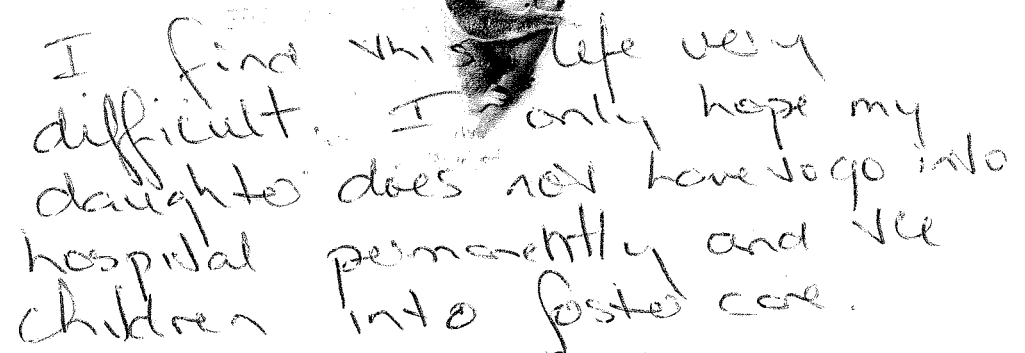 I find this life very
difficult. I only hope my
daughter does not have to go into
hospital permanently and the
children into foster care.